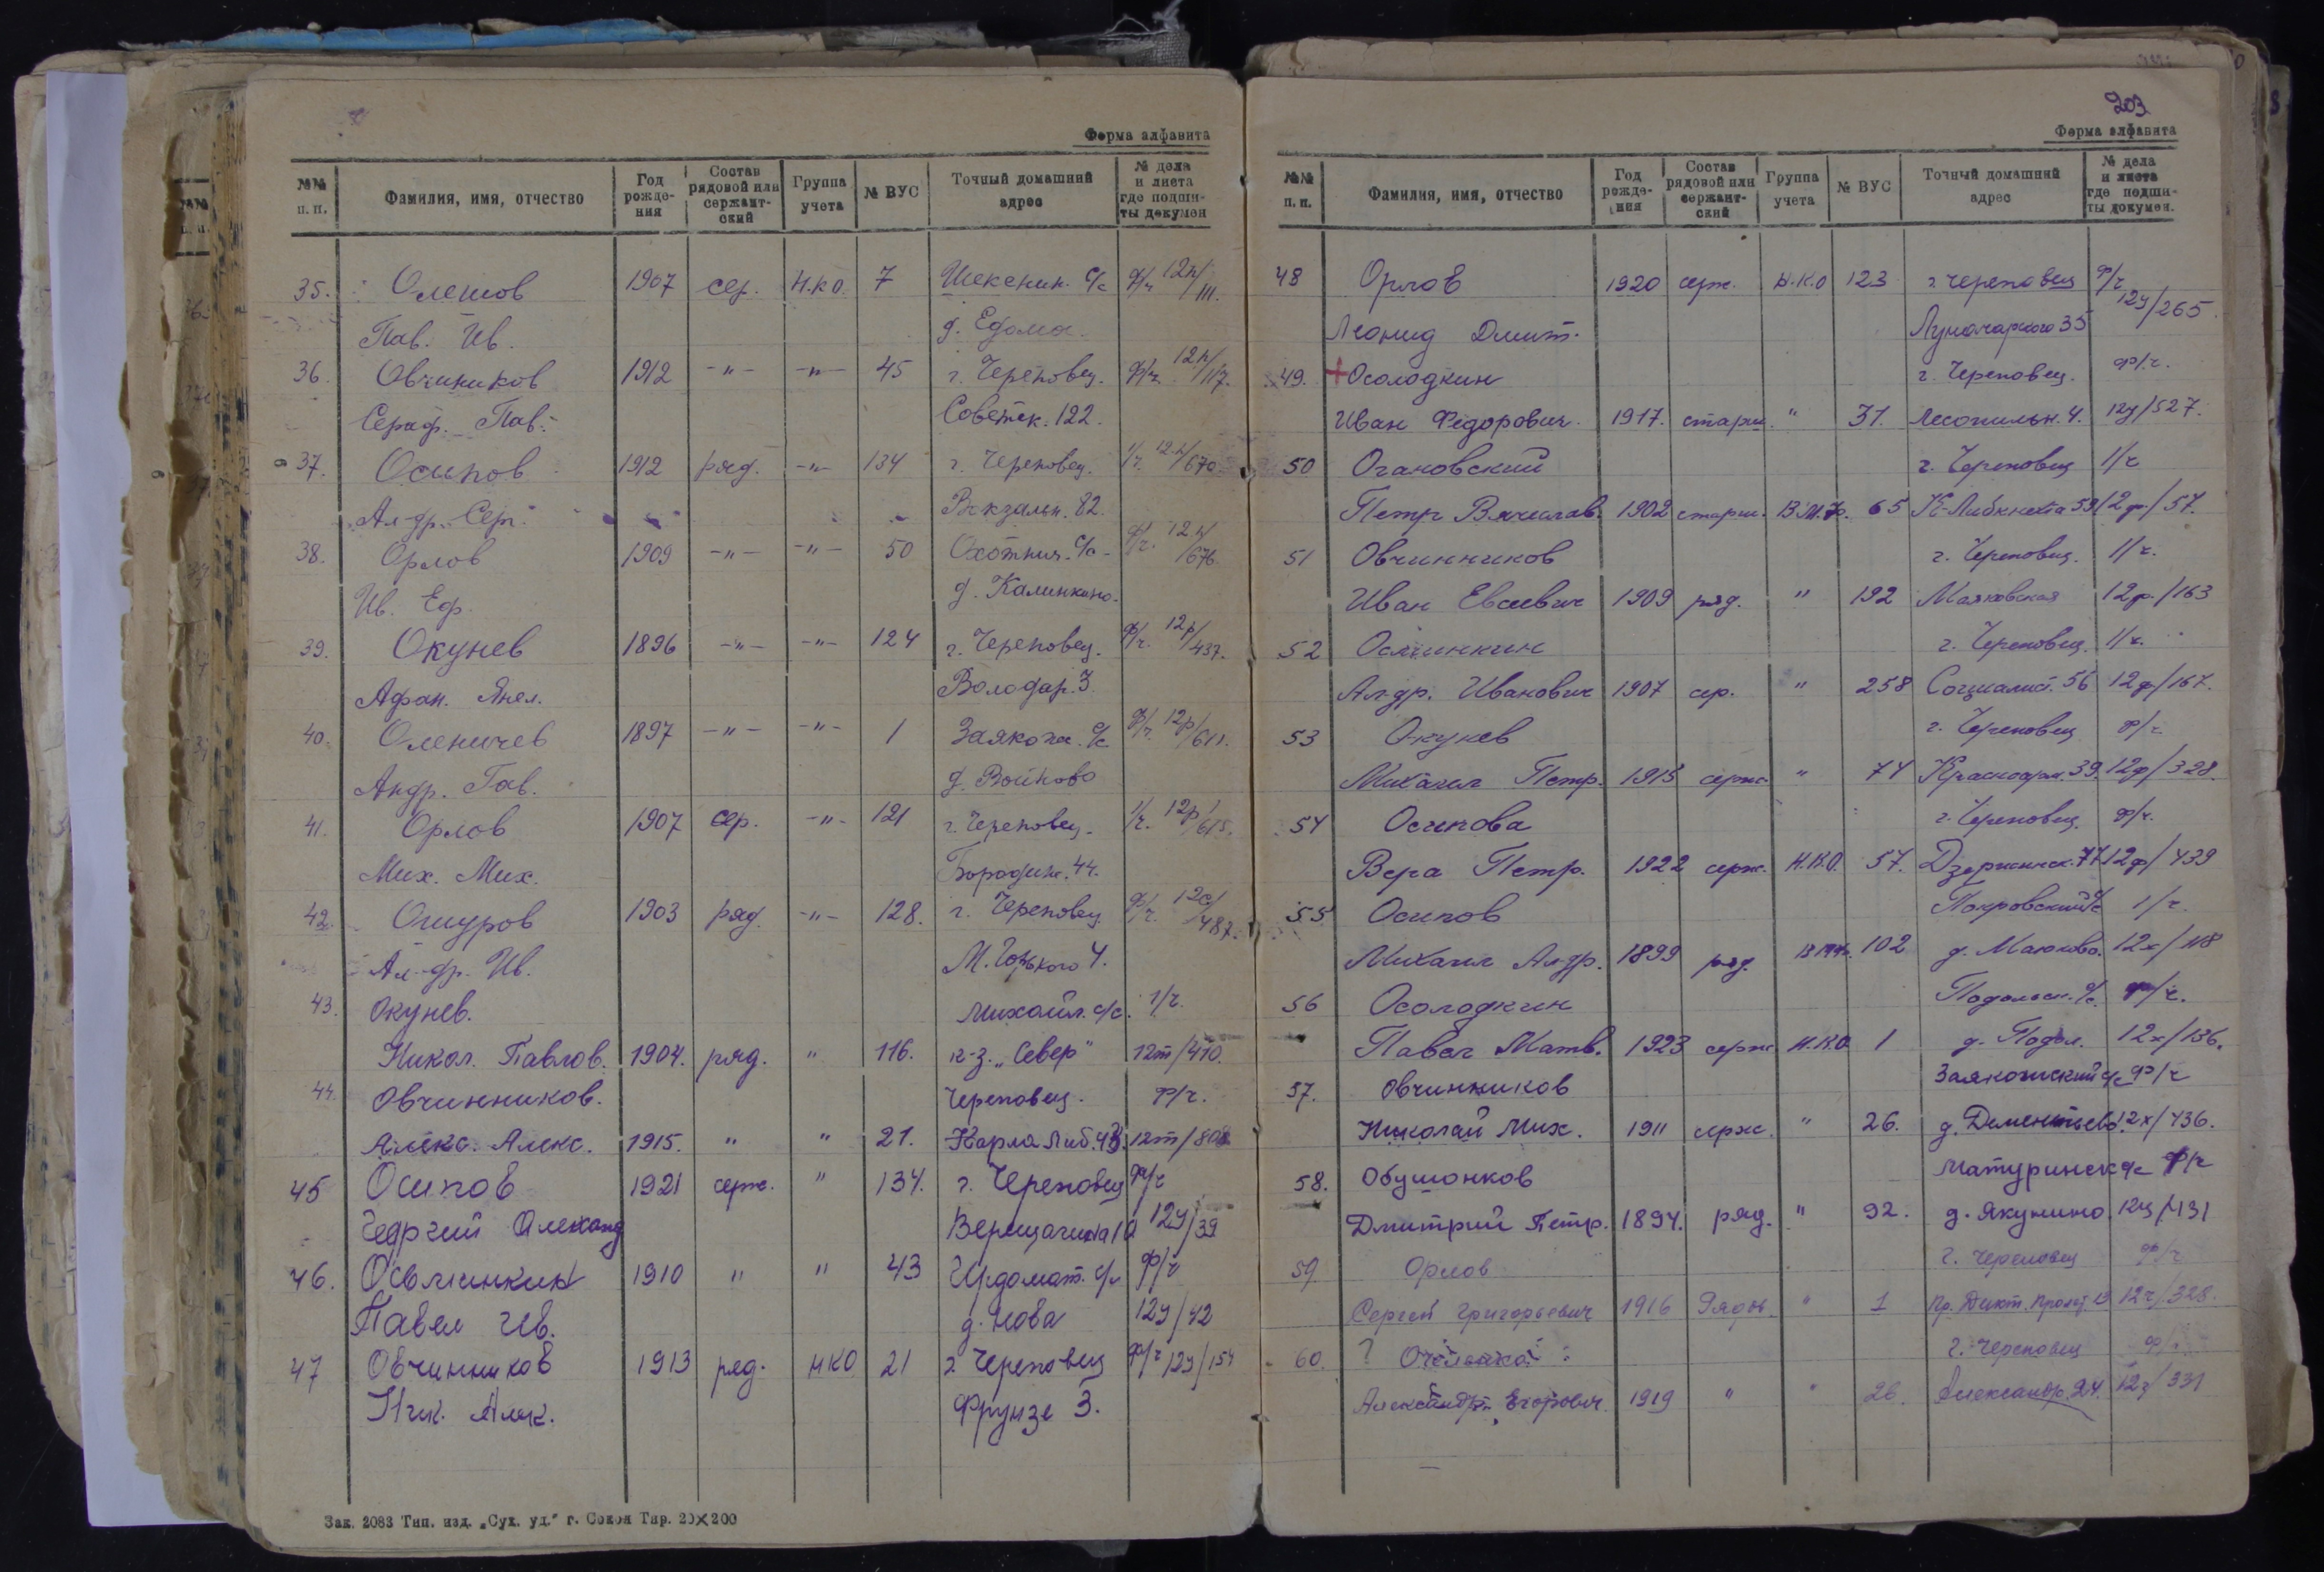 Форма алфавита
№№ п. п. Фамилия, имя, отчество Год рождения Состав рядовой или сержантский Группа учета № ВУС Точный домашний адрес № дела и листа где подшиты докумен
35. Олешов 1907 сер. Н.К.О. 7 Шекснин. с/с ф/ч 12п/111.
Пав. Ив. д. Едома.
36. Овчиников 1912 -"- -"- 45 г. Череповец. ф/ч 12п/117.
Сераф. Пав. Советск. 122.
37. Осипов 1912 ряд. -"- 134 г. Череповец. 1/ч. 12п/670
Ал-др. Серг. Вокзальн. 82.
38. Орлов 1909 -"- -"- 50 Охотнич. с/с ф/ч. 12п/676
Ив. Еф. д. Калинкино.
39. Окунев 1896 -"- -"- 124 г. Череповец. ф/ч. 12р/437.
Афан. Володар. 3.
40. Оленичев 1897 -"- -"- 1 Заякош. с/с ф/ч. 12р/611.
Андр. Гав. д. Войново
41. Орлов 1907 сер. -"- 121 г. Череповец. 1/ч. 12р/615.
Мих. Мих. Бородин. 44.
42. Ошуров 1903 ряд. -"- 128. г. Череповец ф/ч 12с/487.
Ал-др. Ив. М. Горького 4.
43. Окунев. Михайл. с/с. 1/ч.
Никол. Павлов. 1904. ряд. " 116. к-з. „Север" 12т/410.
44. Овчинников. Череповец. ф/ч.
Алекс. Алекс. 1915. " " 21. Карла Либ. 43. 12т/808
45 Осипов 1921 серж. " 134. г. Череповец ф/ч
Георгий Александ Верещагина 10 12у/39
46. Осьминкин 1910 " " 43 Ирдомат. с/с ф/ч
Павел Ив. д. Нова 12у/42
47 Овчинников 1913 ряд. НКО 21 г. Череповец ф/ч 12у/154
Ник. Алек. Фрунзе 3.
Зак. 2083 Тип. изд. „Сух. уд." г. Сокол Тир. 20×200
203
Форма алфавита
№№ п. п. Фамилия, имя, отчество Год рождения Состав рядовой или сержантский Группа учета № ВУС Точный домашний адрес № дела и листа где подшиты докумен.
48 Орлов 1920 серж. Н.К.О 123 г. Череповец ф/ч
Леонид Дмит. Луначарского 35 12у/265.
49. +Осолодкин г. Череповец. ф/ч.
Иван Федорович. 1917. старш. " 31. Лесопильн. 4. 12у/527.
50 Огановский г. Череповец 1/ч
Петр Вячеслав. 1902 старш. В.М.Ф. 65 К-Либкнехта 59 12ф/57.
51 Овчинников г. Череповец. 1/ч.
Иван Евсеевич 1909 ряд. " 192 Маяковская 12ф/163
52 Осминкин г. Череповец. 1/ч.
Алдр. Иванович 1907 сер. " 258 Социалист. 56 12ф/167.
53 Окунев г. Череповец ф/ч
Михаил Петр. 1915 серж " 74 Краснодон. 39. 12ф/328.
54 Осипова г. Череповец. ф/ч.
Вера Петр. 1922 серж. Н.К.О. 57. Дзержинск. 77 12ф/439
55 Осипов Покровский с/с 1/ч.
Михаил Алдр. 1899 ряд. 102 д. Маюково. 12х/118
56 Осолодкин Подольск. с/с. ф/ч.
Павел Матв. 1923 серж Н.К.О. 1 д. Подол. 12х/136.
57. Овчинников Заякошский с/с ф/ч
Николай Мих. 1911 серж. " 26. д. Дементьево. 12х/436.
58. Обушонков Матуринск с/с ф/ч
Дмитрий Петр. 1894. ряд. " 92. д. Якунино. 12ц/431
59 Орлов г. Череповец ф/ч
Сергей Григорьевич 1916 Рядов. " 1 12ч/328.
60. ? г. Череповец ф/ч
Александр Егорович 1919 " " 26. Александр. 24. 12ч/331